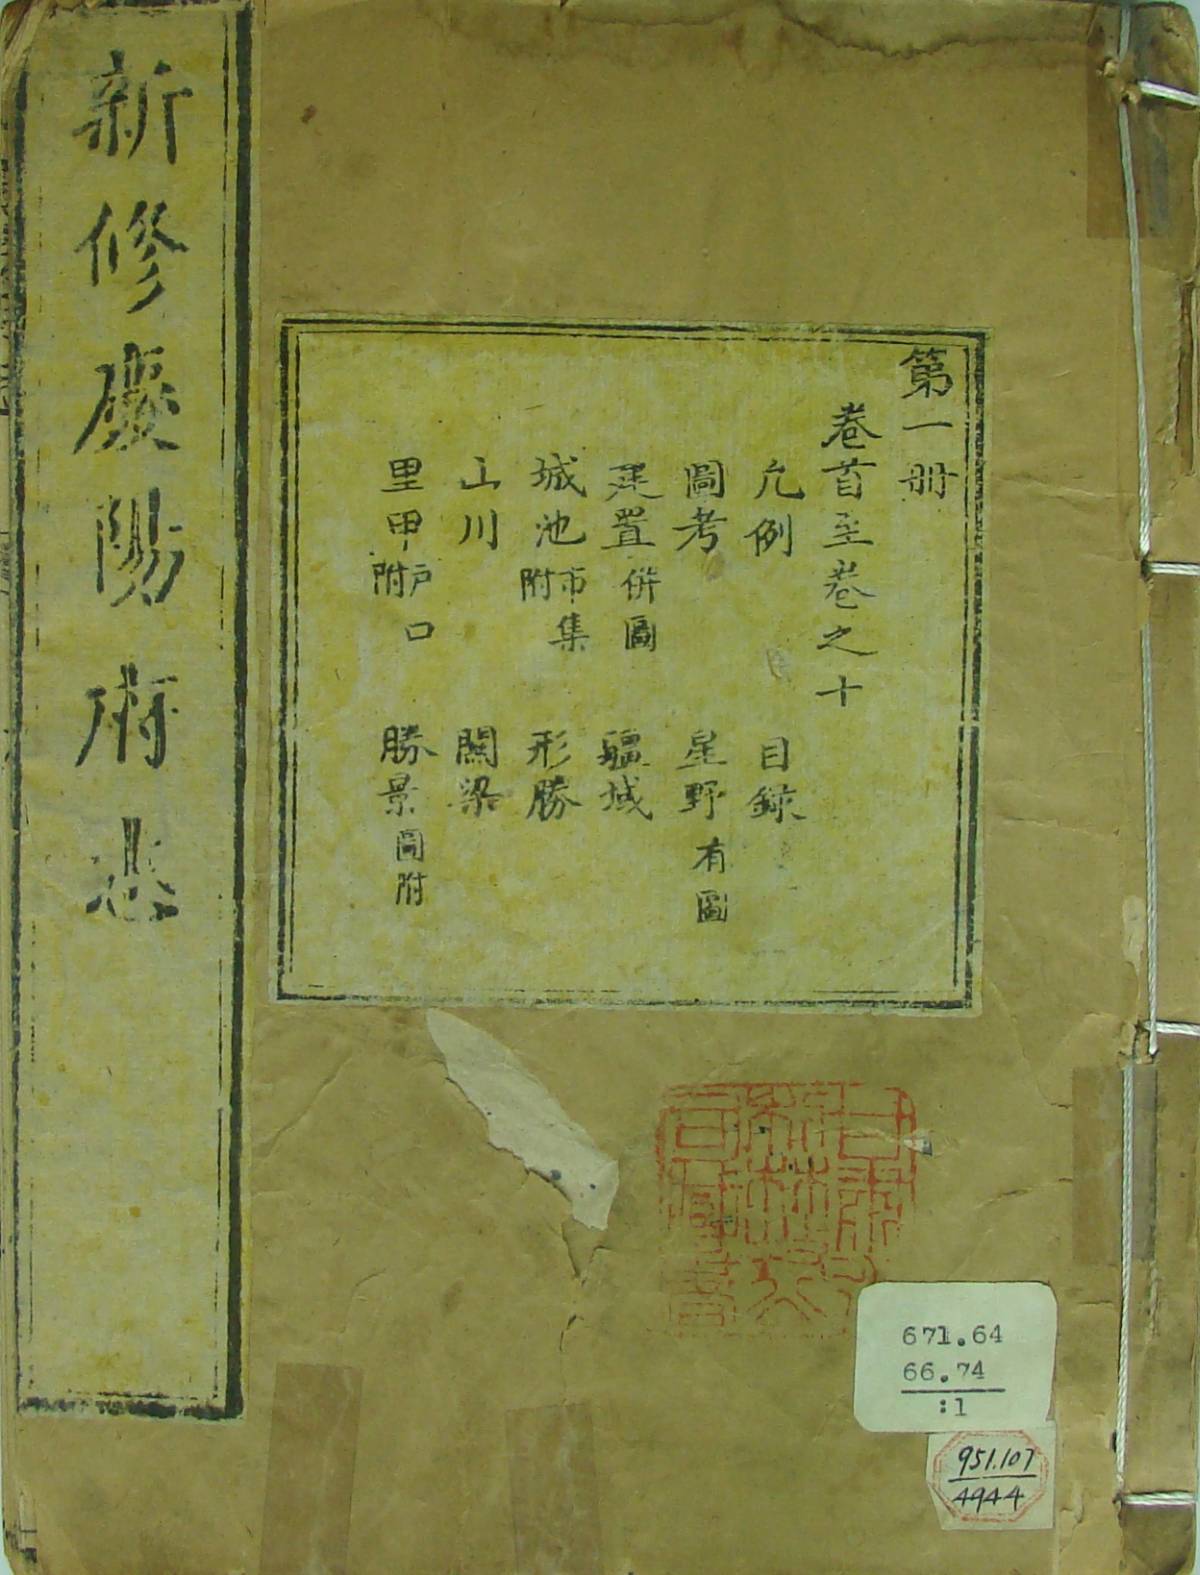 新修慶陽府志
第一冊
卷首至卷之十
凢例 目錄
圖考 星野有圖
建置併圖 疆域
城池市集附 形勝
山川 關梁
里甲戶口附 勝景圖附
671.64
66.74
:1
951.107
4944